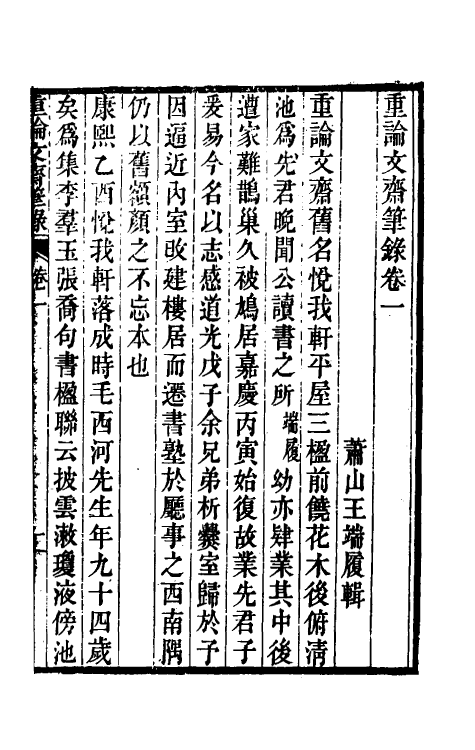 重論文齋筆錄卷一
蕭山王端履輯
重論文齋舊名悅我軒平屋三楹前饒花木後俯淸
池爲先君晚聞公讀書之所端履幼亦肄業其中後
遭家難鵲巢久被鳩居嘉慶丙寅始復故業先君子
爰易今名以志感道光戊子余兄弟析爨室歸於予
因逼近內室改建樓居而遷書塾於廳事之西南隅
仍以舊額顏之不忘本也
康熙乙酉悅我軒落成時毛西河先生年九十四歲
矣爲集李羣玉張喬句書楹聯云披雲漱瓊液傍池
重論文齋筆錄 卷一 一